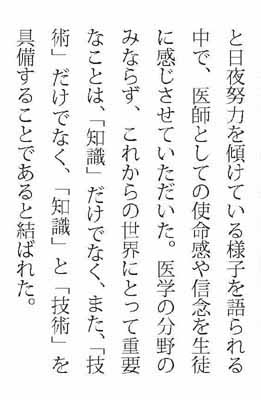 と日夜努力を傾けている様子を語られる
中で、医師としての使命感や信念を生徒
に感じさせていただいた。医学の分野の
みならず、これからの世界にとって重要
なことは、「知識」だけでなく、また、「技
術」だけでなく、「知識」と「技術」を
具備することであると結ばれた。